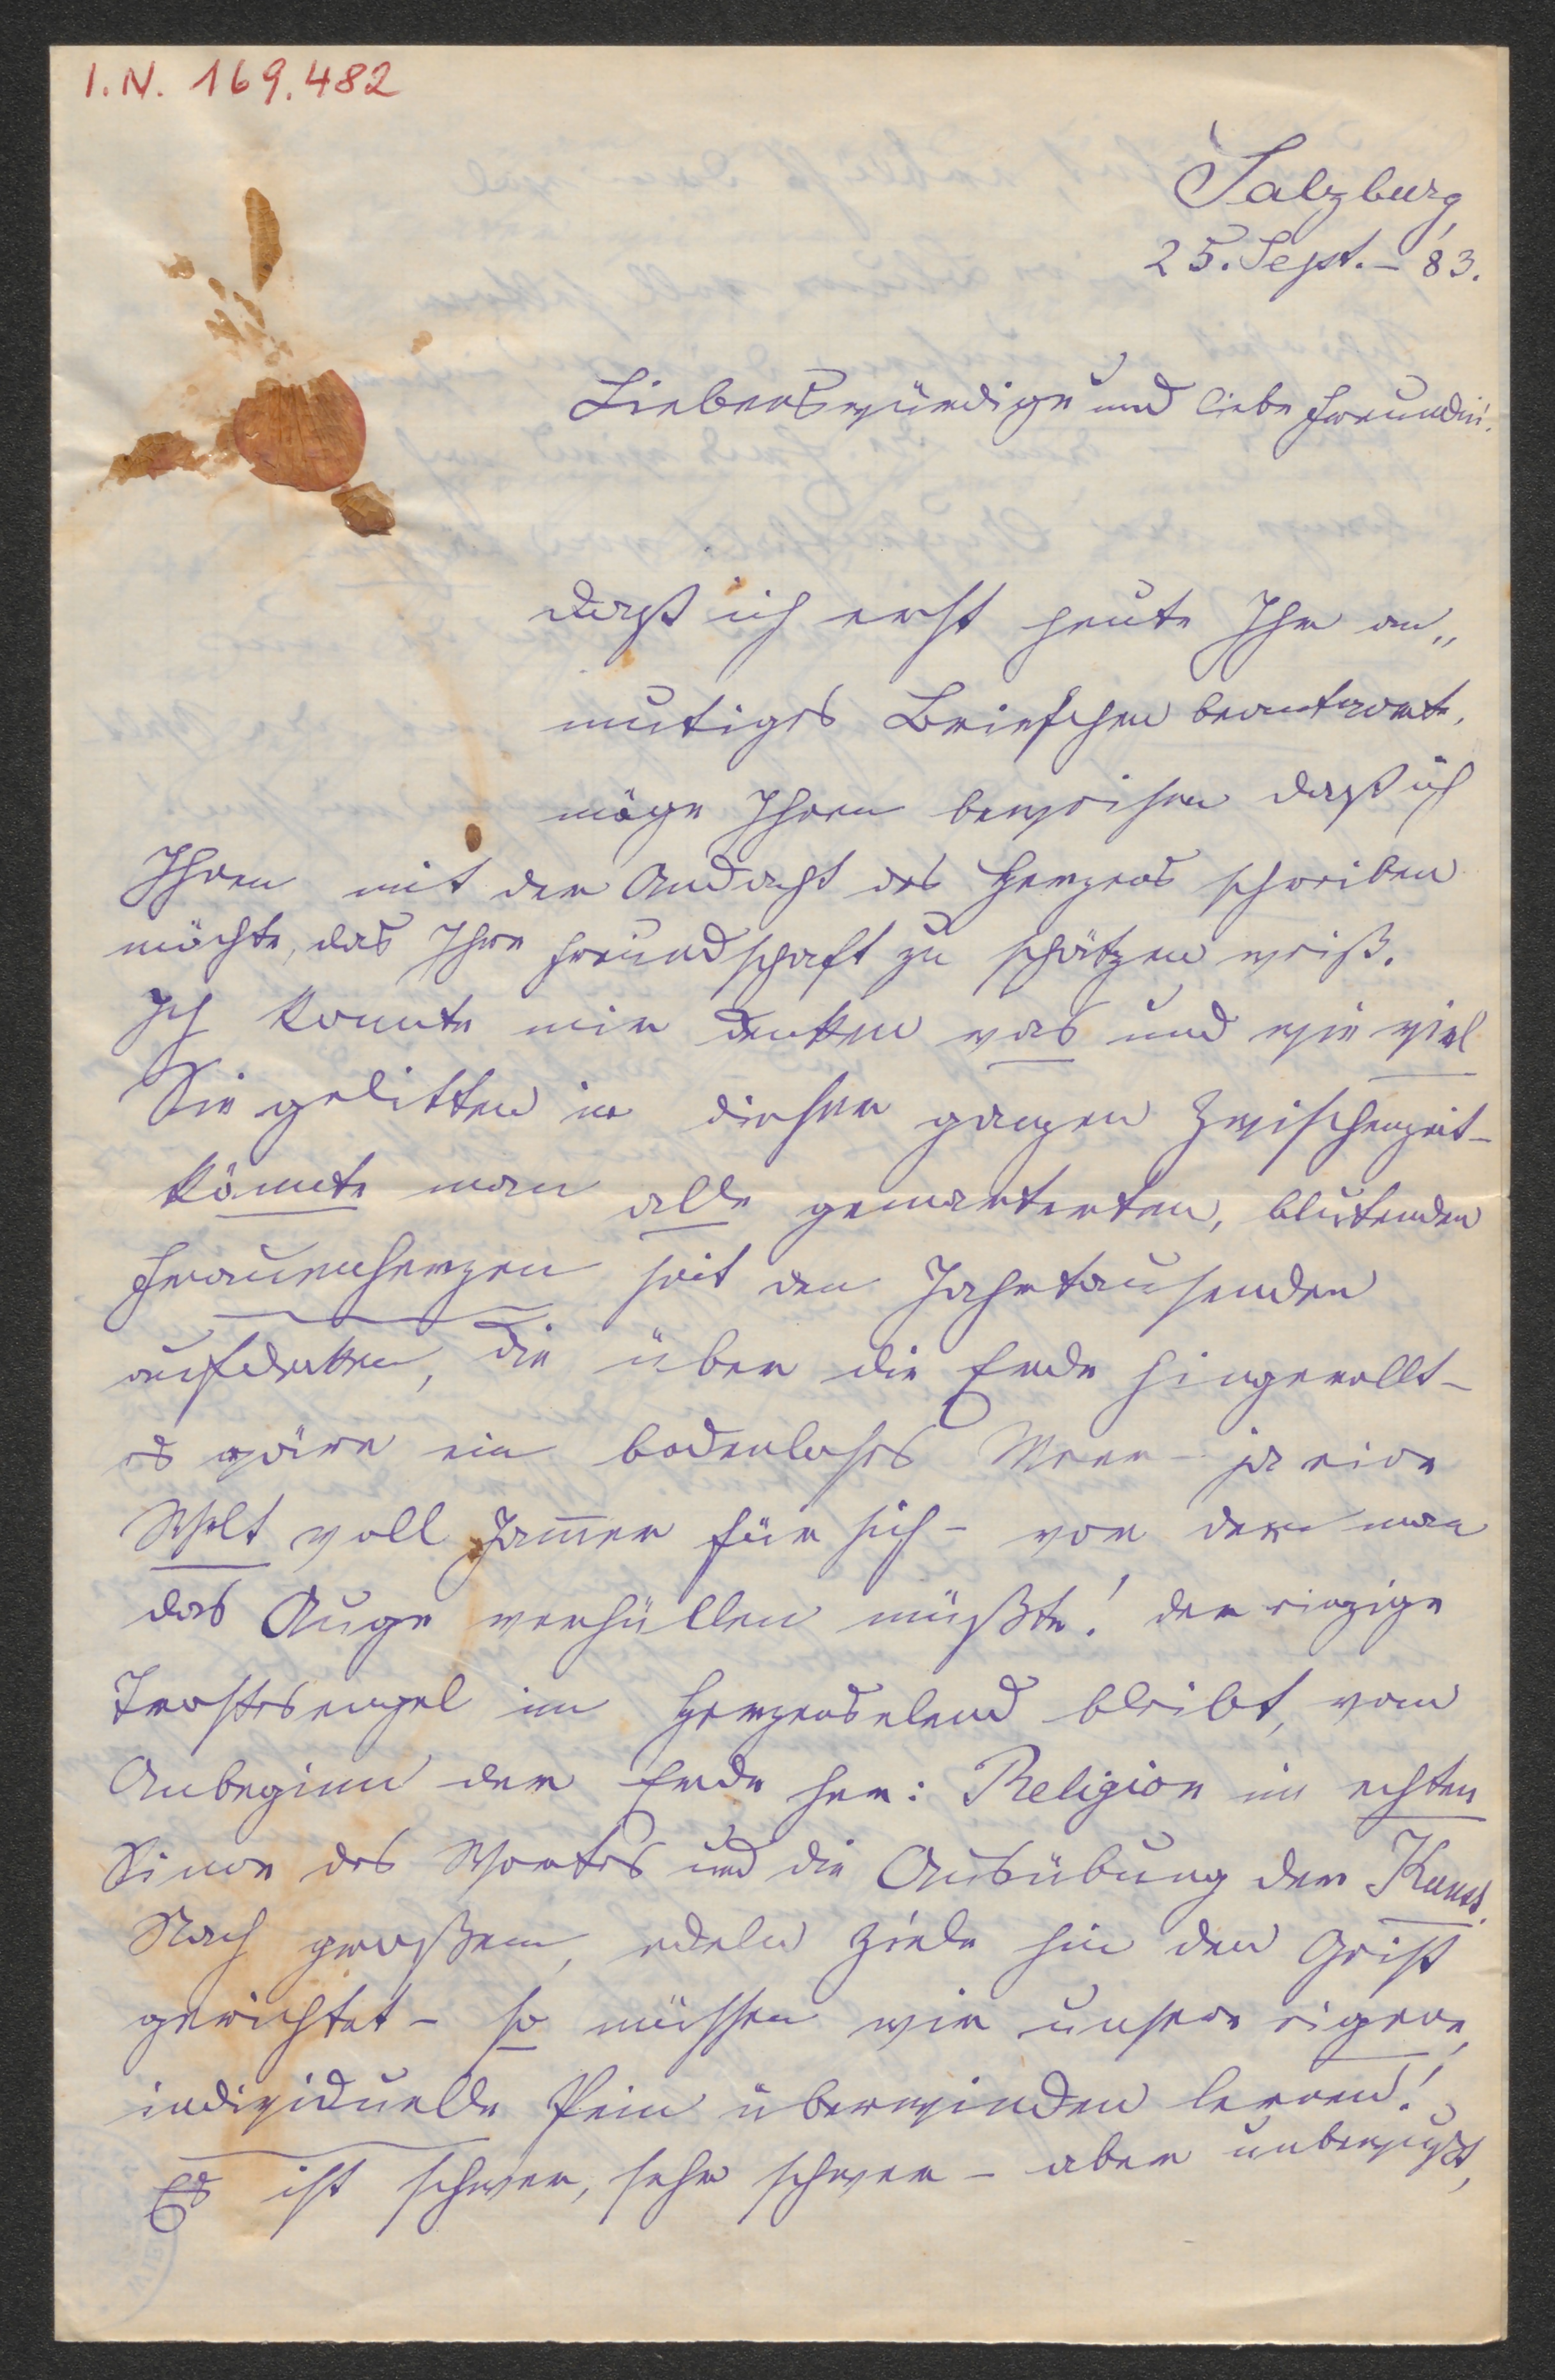 I.N. 169.482
Salzburg,
25. Sept. – 83.
Liebenswürdige und liebe Freundin!
Daß ich erst heute Ihr an„
mutiges Briefchen beantworte,
möge Ihnen beweisen daß ich
Ihnen mit der Andacht des Herzens schreiben
möchte, das Ihre Freundschaft zu schätzen weiß.
Ich konnte mir denken was und wie viel
Sie gelitten in dieser ganzen Zwischenzeit –
könnte man alle gemarterten, blutenden
Frauenherzen seit den Jahrtausenden
aufdecken, die über die Erde hingerollt –
es wäre ein bodenloses Meer – ja eine
Welt voll Jam̅er für sich – vor dem man
das Auge verhüllen müßte! der einzige
Trostesengel im Herzenselend bleibt, vom
Anbeginn der Erde her: Religion im echten
Sinne des Wortes und die Ausübung der Kunst.
Nach großem, edeln Ziele hin den Geist
gerichtet – so müssen wir unsere eigene,
individuelle Pein überwinden lernen!
Es ist schwer, sehr schwer – aber unbewußt,